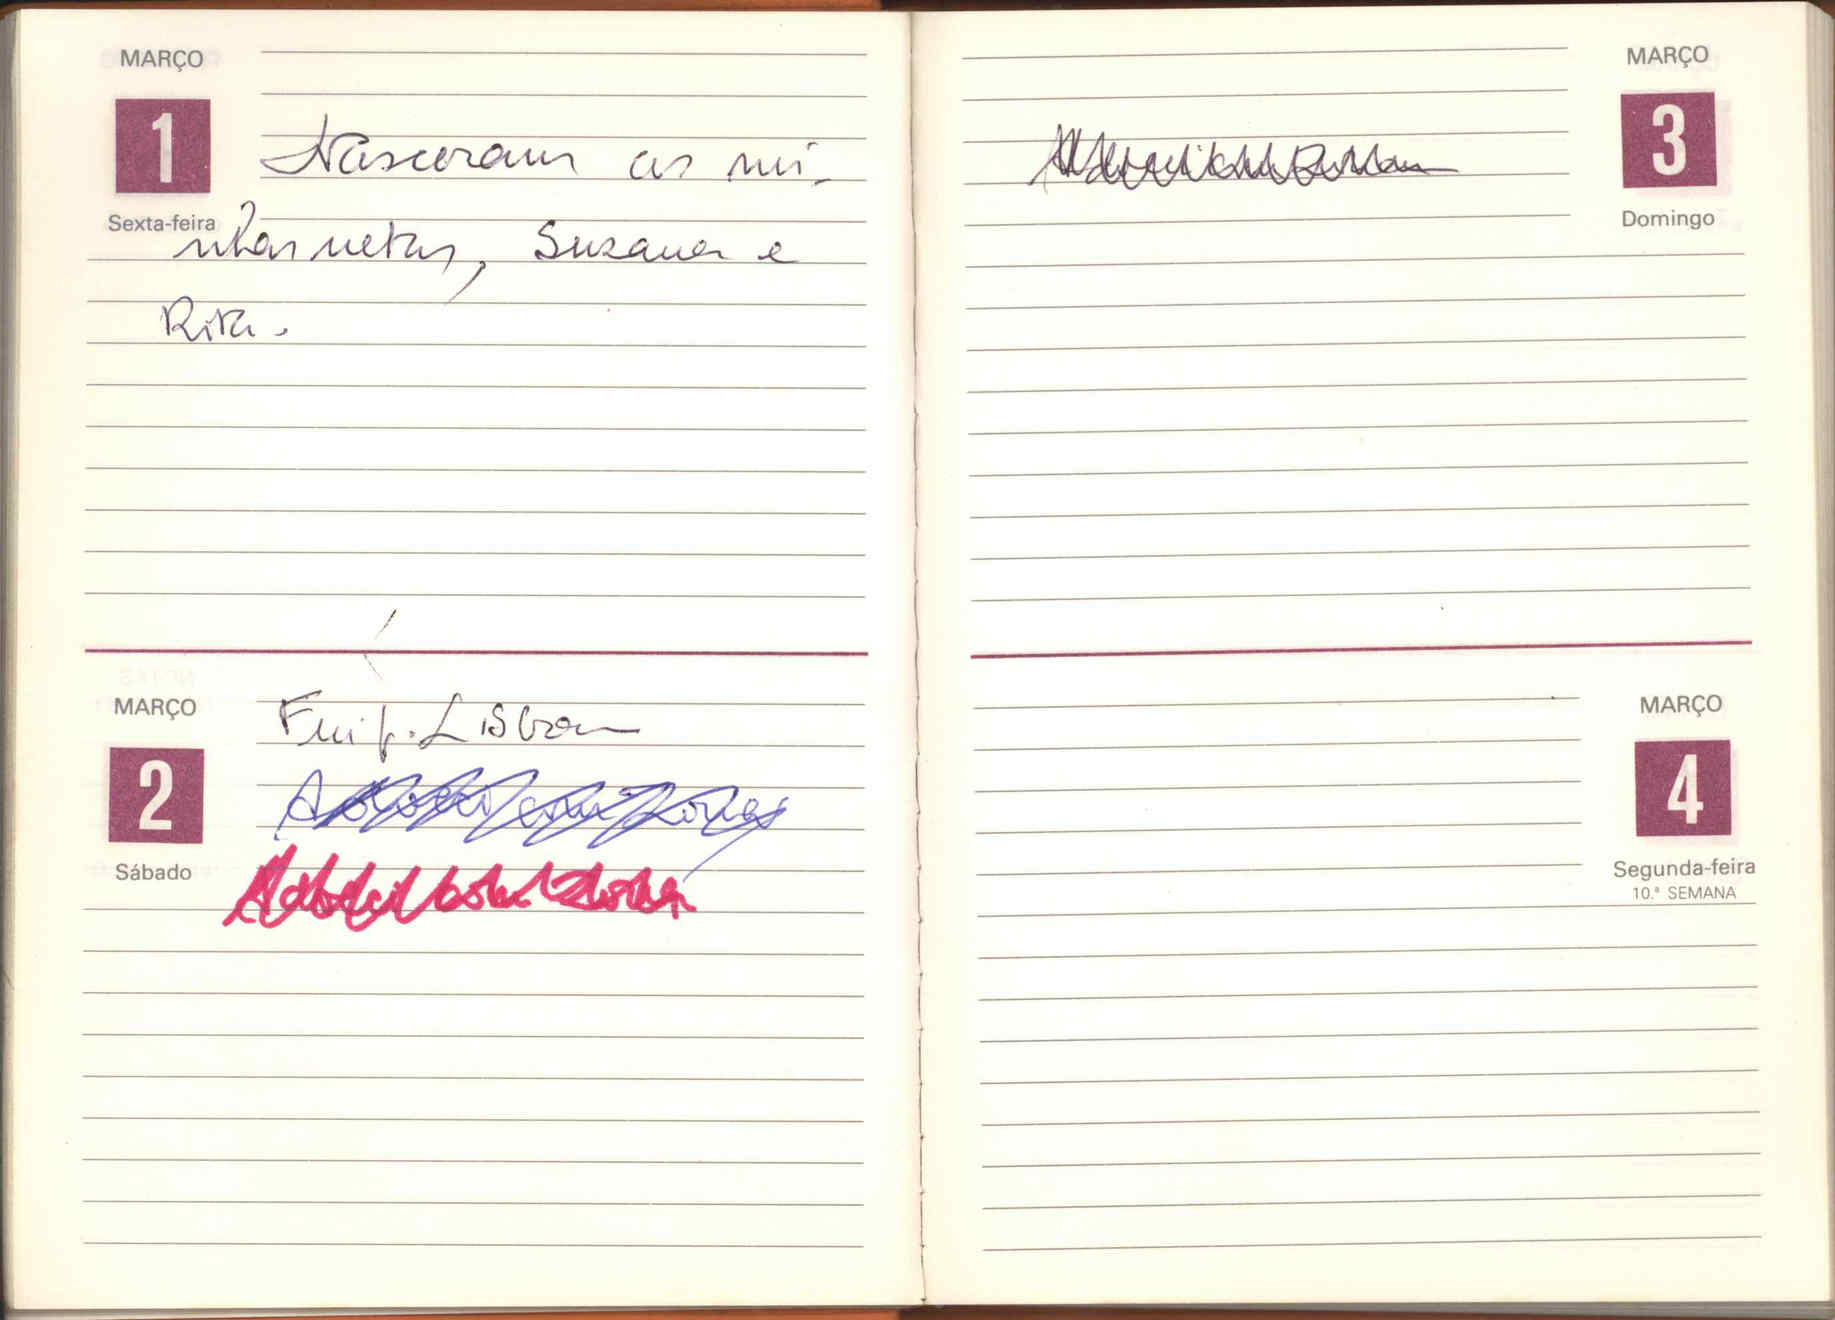 MARÇO
1
Sexta-feira
Nasceram as mi-
nhas netas, Suzana e
Rita.
MARÇO
2
Sábado
Lisboa
MARÇO
3
Domingo
MARÇO
4
Segunda-feira
10.ª SEMANA